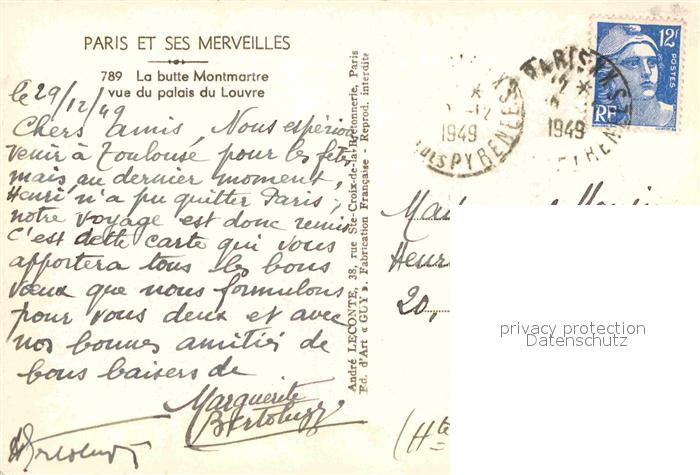 PARIS ET SES MERVEILLES
789 La butte Montmartre
vue du palais du Louvre
le 29/12/49
Chers Amis, Nous espérions
venir à Toulouse pour les fêtes
mais au dernier moment,
Henri n'a pu quitter Paris;
notre voyage est donc remis
C'est cette carte qui vous
apportera tous les bons
vœux que nous formulons
pour vous deux et avec
nos bonnes amitiés de
bons baisers de
Marguerite
Bertoluzzi
André LECONTE, 38, rue Ste-Croix-de-la-Bretonnerie, Paris
Ed. d'Art « GUY ». Fabrication Française - Reprod. interdite
12F
POSTES
RF
1949
PYRENEES
PARIS
1949
Heur
20,
(Hte
privacy protection
Datenschutz